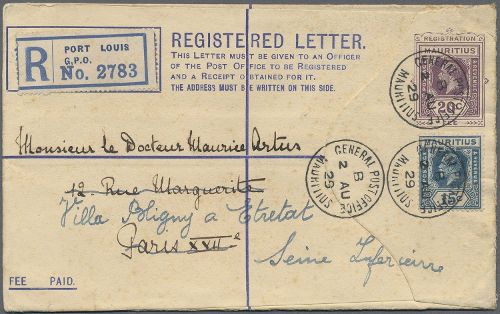 PORT LOUIS
G.P.O.
R No. 2783
REGISTERED LETTER.
THIS LETTER MUST BE GIVEN TO AN OFFICER
OF THE POST OFFICE TO BE REGISTERED
AND A RECEIPT OBTAINED FOR IT.
THE ADDRESS MUST BE WRITTEN ON THIS SIDE.
REGISTRATION
MAURITIUS
20c
GENERAL POST OFFICE
B
2 AU
29
MAURITIUS
Monsieur le Docteur Maurice Artus
GENERAL POST OFFICE
B
2 AU
29
MAURITIUS
MAURITIUS
15c
GENERAL POST OFFICE
29
MAURITIUS
12. Rue Marguerite
Villa Bligny à Etretat
Paris XVIIe
Seine Inferieure
FEE PAID.